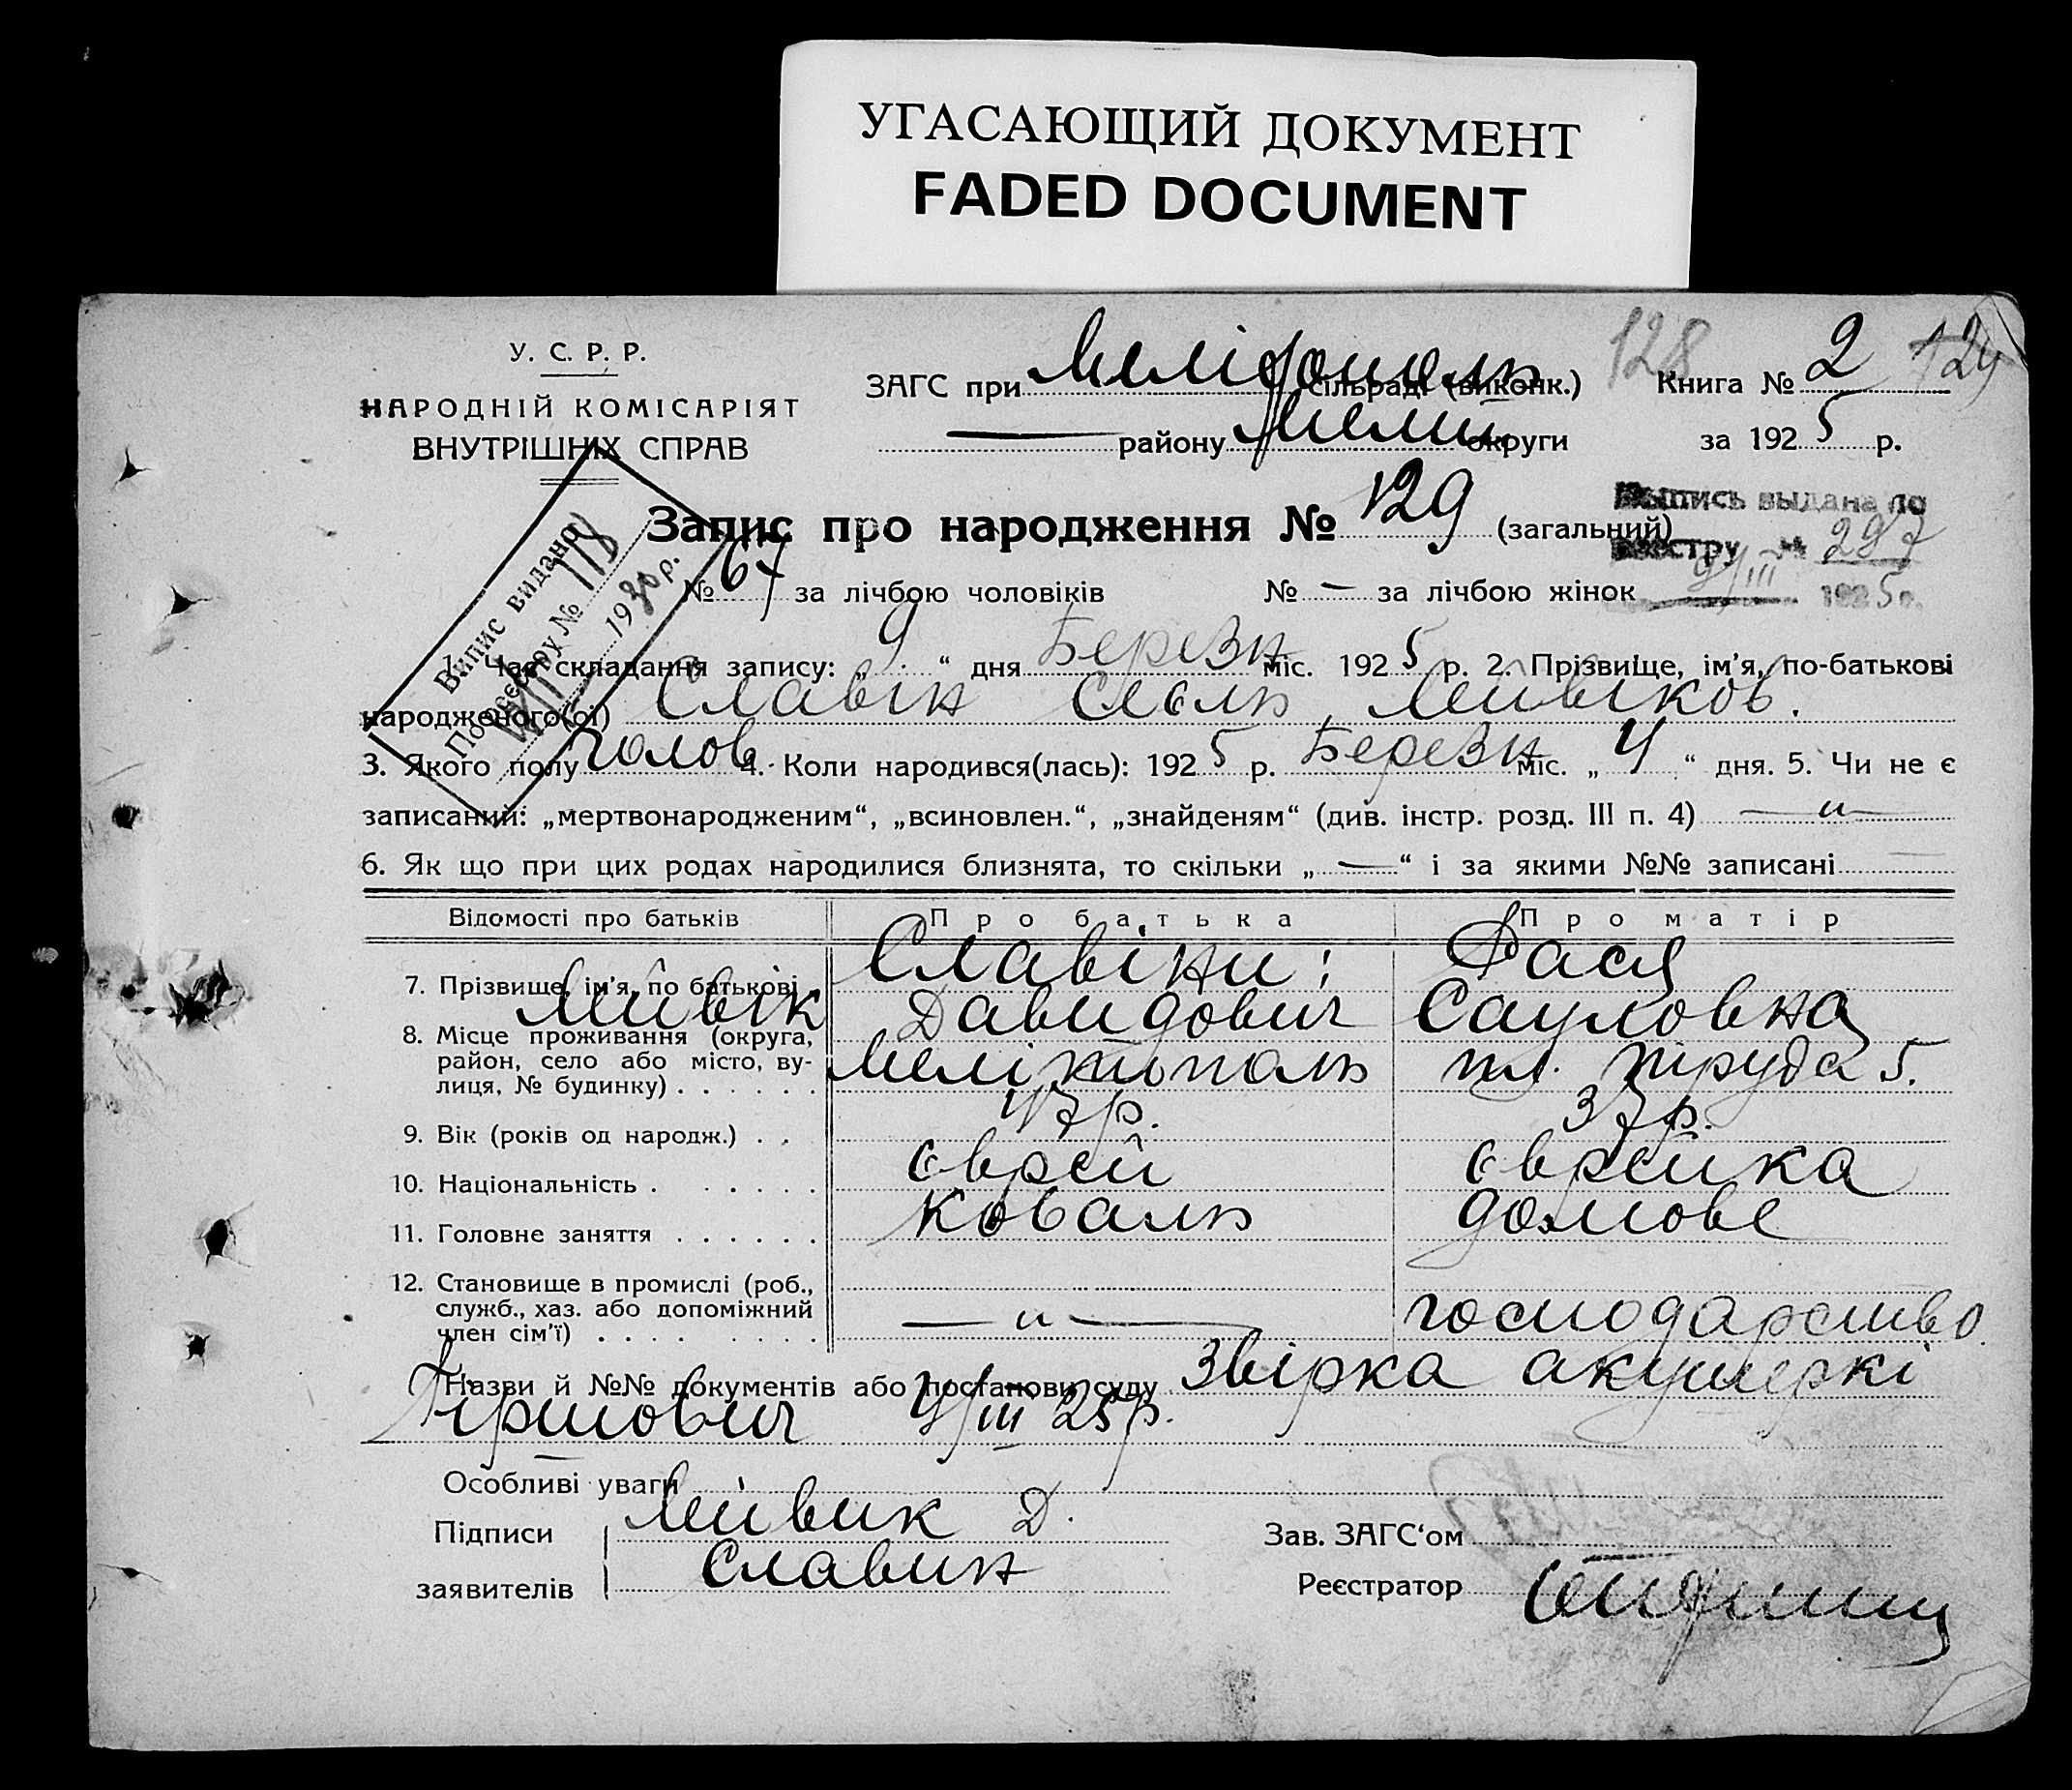 УГАСАЮЩИЙ ДОКУМЕНТ
FADED DOCUMENT
У. С. Р. Р.
НАРОДНІЙ КОМІСАРІЯТ
ВНУТРІШНІХ СПРАВ
ЗАГС при Мелітополь сільраді (виконк.)
128
Книга № 2
района
району Мелит округи
за 1925 р.
Запис про народження № 129 (загальний)
Выпись выдана по
Реестру № 287
9/III 1925 г.
Випис видано
По реєстру № 118
1930 р.
№ 67 за лічбою чоловіків № — за лічбою жінок
1. Час складання запису: „ 9 “ дня Березн міс. 1925 р. 2. Прізвище, ім’я, по-батькові
народженого(ої) Славін Лейвіков.
3. Якого полу чолов. 4. Коли народився(лась): 1925 р. Березн міс. „ 4 “ дня. 5. Чи не є
записаний: „мертвонародженим“, „всиновлен.“, „знайденям“ (див. інстр. розд. III п. 4) — „ —
6. Як що при цих родах народилися близнята, то скільки „ — “ і за якими №№ записані —
Відомості про батьків Про батька Про матір
7. Прізвище, ім’я, по батькові Славіни: Фася
Лейвік Давидович Сауловна
8. Місце проживання (округа, район, село або місто, ву-
лиця, № будинку) Мелітополь пл. труда 5.
9. Вік (років од народж.) 47 р. 37 р.
10. Національність єврей єврейка
11. Головне заняття коваль домове
12. Становище в промислі (роб.,
служб., хаз. або допоміжний
член сім’ї) — „ — господарство.
Назви й №№ документів або постанови суду Звірка акушеркі
Гіршович 4/III 25 р.
Особливі уваги
Підписи Лейвик Д.
заявителів Славин
Зав. ЗАГС‘ом
Реєстратор